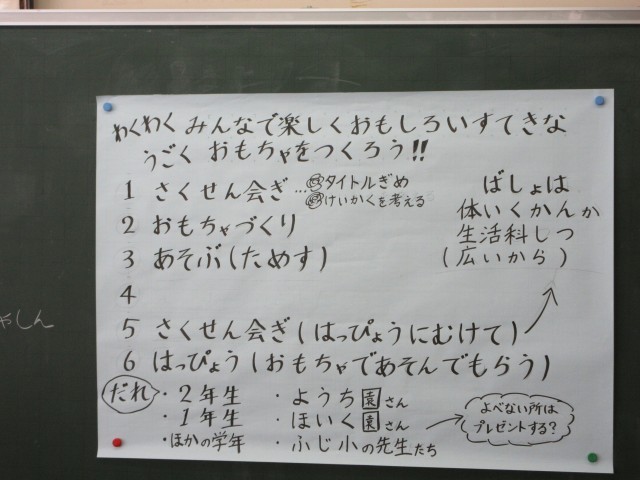 わくわく みんなで楽しくおもしろいすてきな
うごく おもちゃをつくろう!!
1 さくせん会ぎ…タイトルぎめ
けいかくを考える
2 おもちゃづくり
3 あそぶ(ためす)
4
5 さくせん会ぎ(はっぴょうにむけて)
6 はっぴょう(おもちゃであそんでもらう)
ばしょは
体いくかんか
生活科しつ
(広いから)
だれ
・2年生
・1年生
・ほかの学年
・ようち園さん
・ほいく園さん
・ふじ小の先生たち
よべない所は
プレゼントする?
やしん